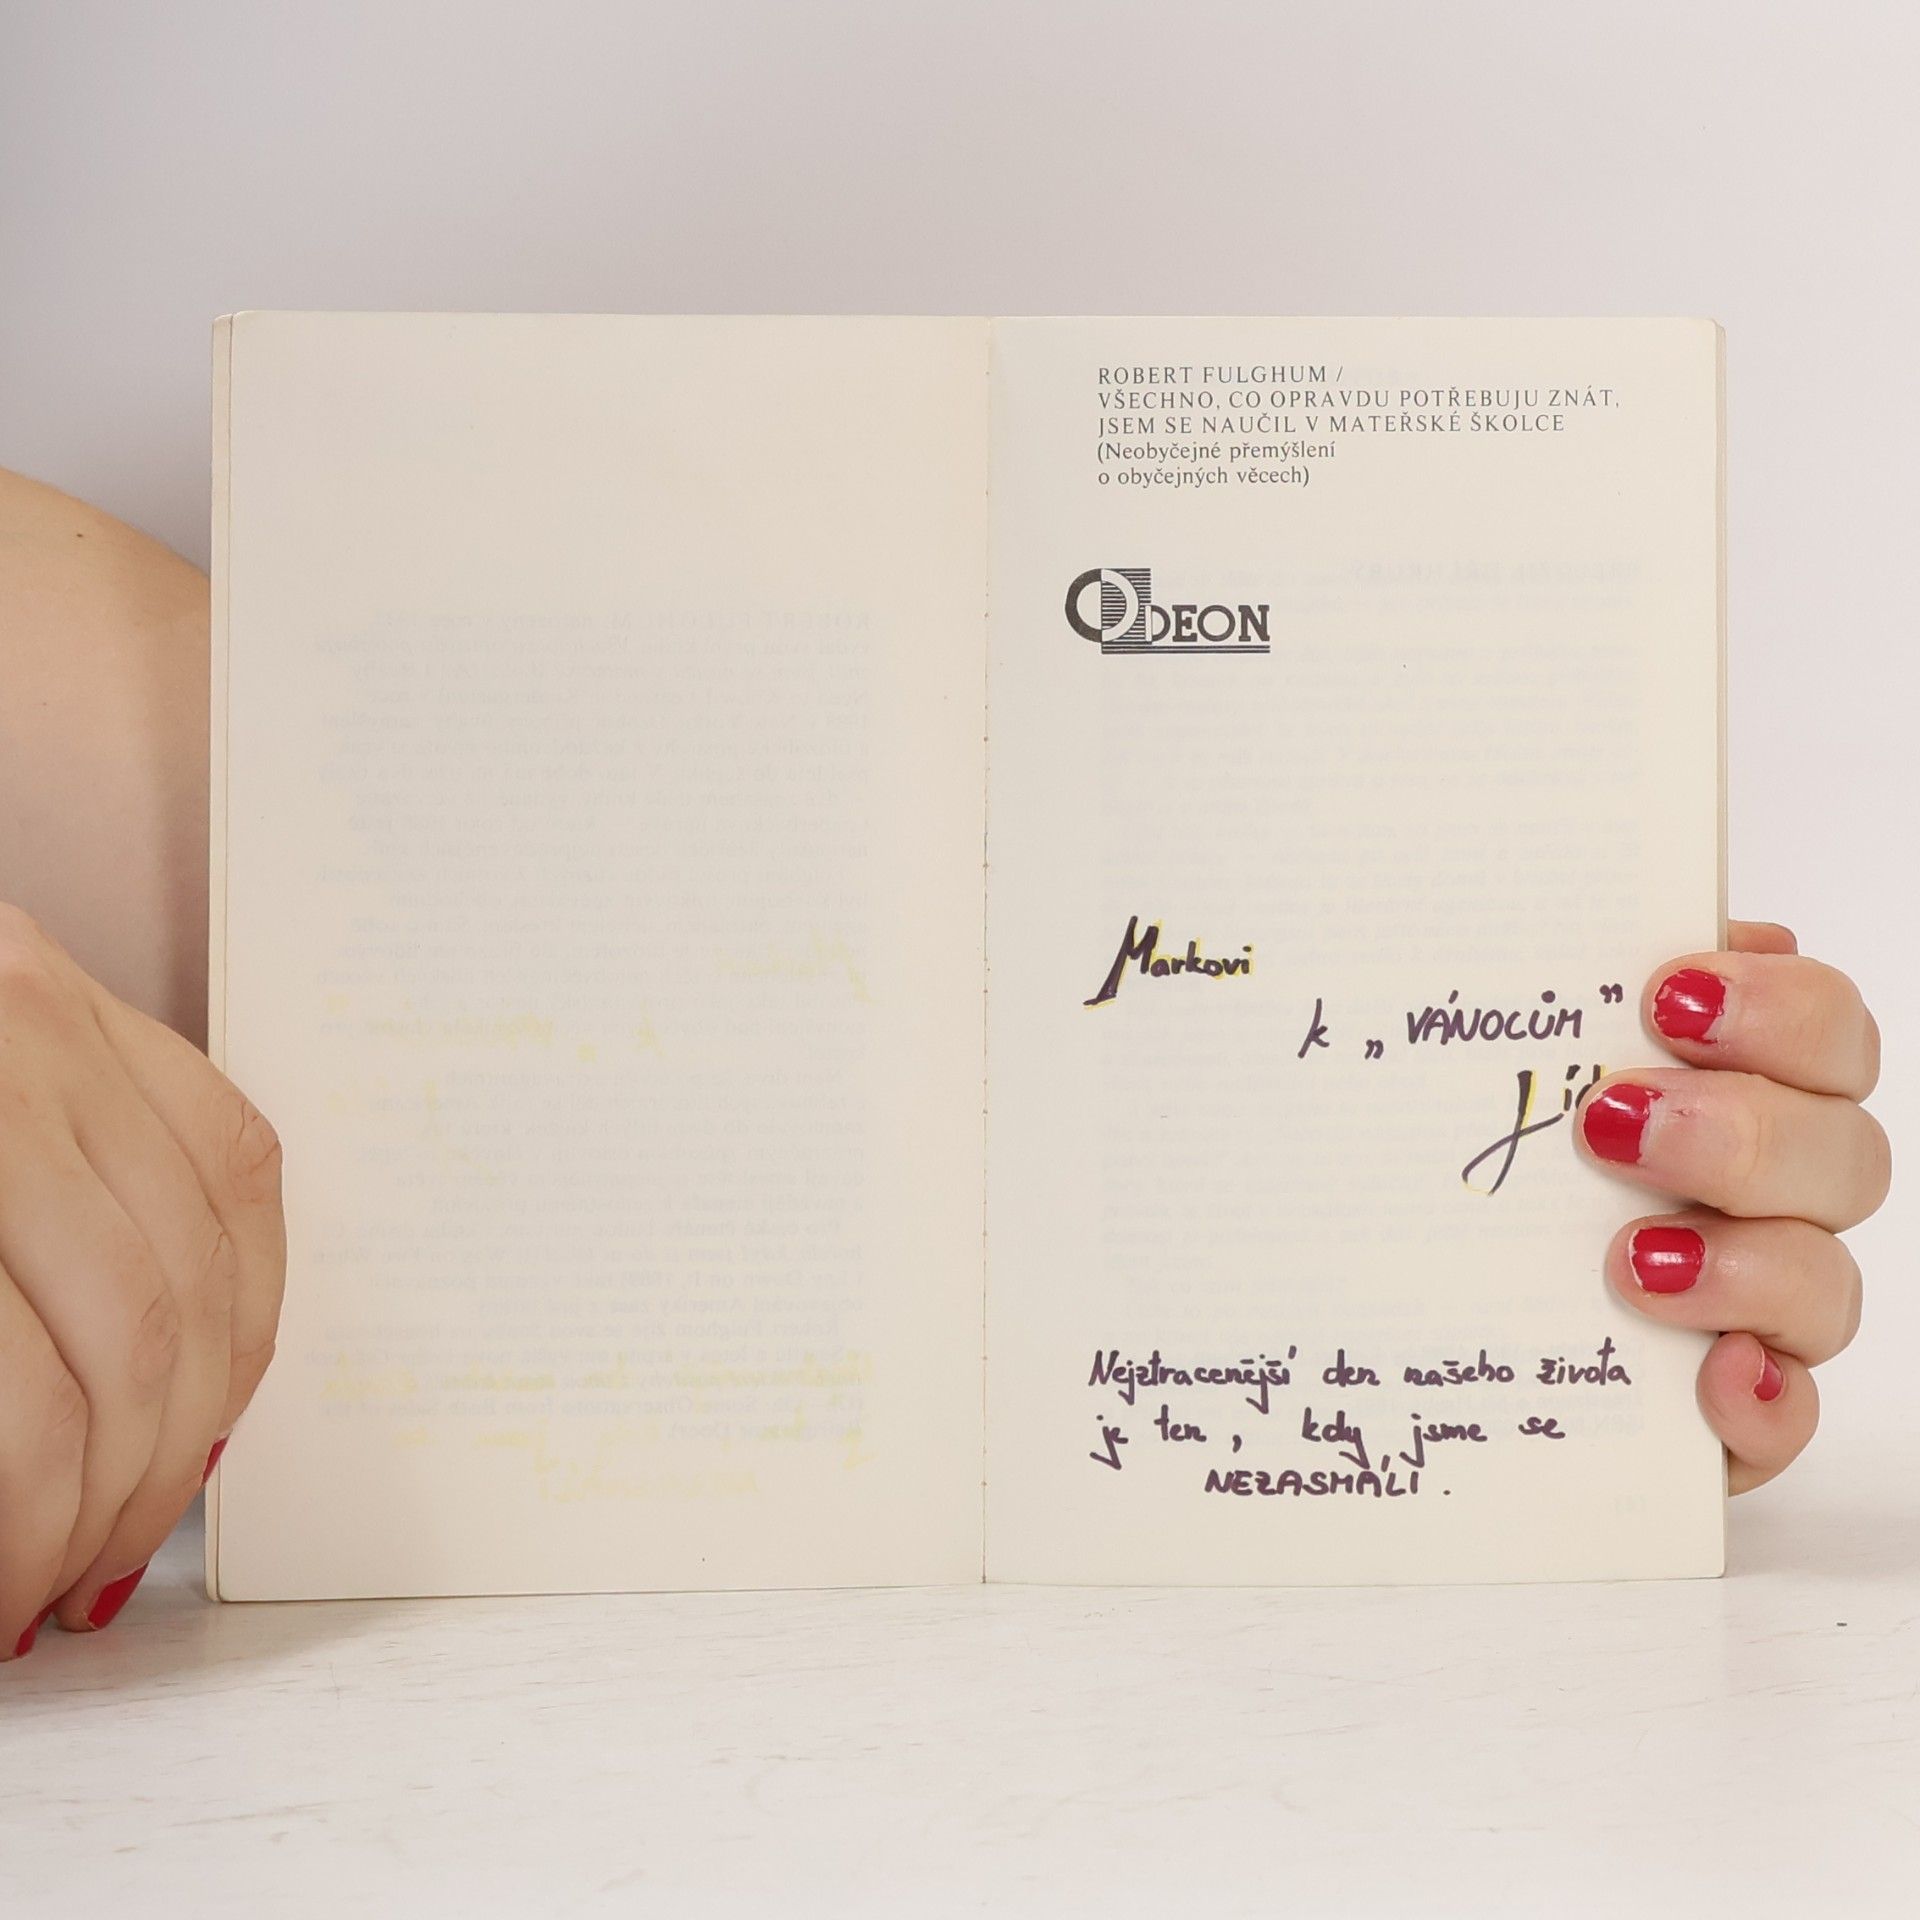 ROBERT FULGHUM /
VŠECHNO, CO OPRAVDU POTŘEBUJU ZNÁT,
JSEM SE NAUČIL V MATEŘSKÉ ŠKOLCE
(Neobyčejné přemýšlení
o obyčejných věcech)
ODEON
Markovi
k „VÁNOCŮM”
Nejztracenější den našeho života
je ten, kdy jsme se
NEZASMÁLI.